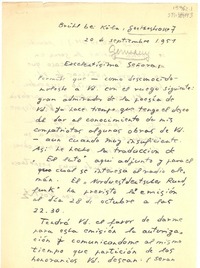 Brühl bei Köln, Gartenstrasse 7
20 de septiembre 1951
Germany
Excelentísima Señora:
Permita que un desconocido
moleste a Vd. con el ruego siguiente:
gran admirador de la poesía de
Vd. yo seré preso que tengo el deseo
de dar al conocimiento de mis
compatriotas algunas obras de Vd.
aun que cuando muy insuficiente.
Así he hecho la traducción de
"El Ixto" aquí adjunta y para el
cual se interesa el radio ale-
mán. El "Nordwestdeutsche Rund-
funk" ha previsto la emisión
al día 28 de octubre a las
22.30.
Tendrá Vd. el favor de darme
para esta emisión la autoriza-
ción y comunicándome al mismo
tiempo que partición de los
honorarios Vd. desea: 1 serán